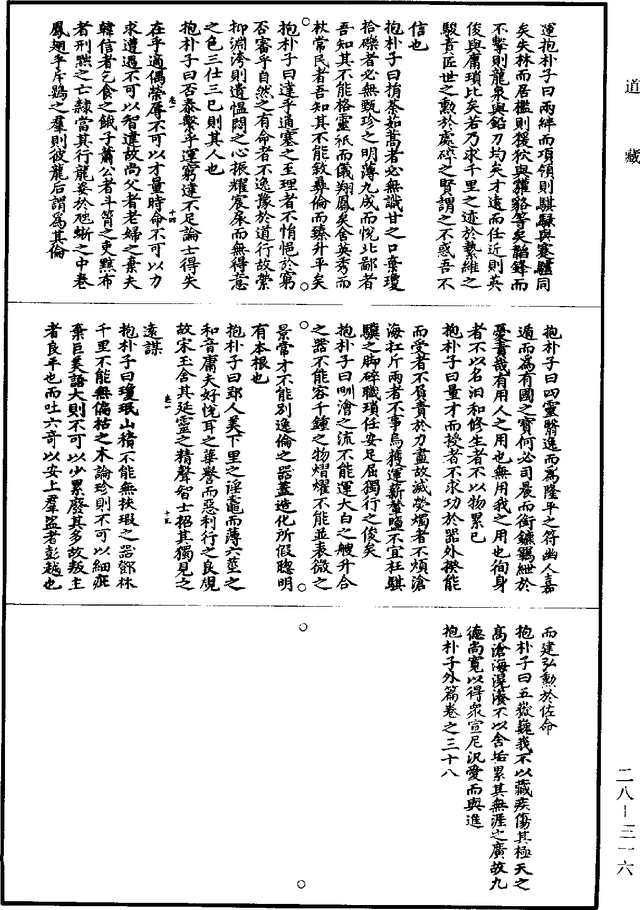 道 藏
運抱朴子曰兩絆而項領則騏騄與蹇驢同
矣失林而居檻則猨狖與玃貉等矣韜鋒而
不擊則龍泉與鉛刀均矣才遠而任近則英
俊與庸瑣比矣若乃求千里之迹於縶維之
駿責匠世之勳於處碎之賢謂之不惑吾不
信也
抱朴子曰捐荼茹蒿者必無識甘之口棄瓊
拾礫者必無甄珍之明薄九成而悅北鄙者
吾知其不能格靈祇而儀翔鳳矣舍英秀而
杖常民者吾知其不能敘彝倫而臻升平矣
抱朴子曰達乎通塞之至理者不悁悒於窮
否審乎自然之有命者不逸豫於道行故縈
抑淵洿則遺愠悶之心振耀宸扆而無得意
之色三仕三已則其人也
抱朴子曰否泰繫乎運窮達不足論士得失
在乎適偶榮辱不可以才量時命不可以力
求遭遇不可以智違故尚父者老婦之棄夫
韓信者乞食之餓子蕭公者斗筲之吏黥布
者刑黥之亡隸當其行龍姿於虺蜥之中卷
鳳翅乎斥鷃之羣則彼龍后謂爲其倫
抱朴子曰四靈翳逸而爲隆平之符幽人嘉
遁而爲有國之寶何必司晨而銜鑣羈紲於
憂責哉有用人之用也無用我之用也徇身
者不以名汩和修生者不以物累已
抱朴子曰量才而授者不求功於器外揆能
而受者不負責於力盡故滅熒燭者不煩滄
海扛斤兩者不事烏獲運薪輦鹽不宜枉騏
驥之脚碎職瑣任安足屈獨行之俊矣
抱朴子曰甽澮之流不能運大白之艘升合
之器不能容千鍾之物熠耀不能並表微之
景常才不能別逸倫之器蓋造化所假聰明
有本根也
抱朴子曰郢人美下里之淫䵷而薄六莖之
和音庸夫好悅耳之華譽而惡利行之良規
故宋玉含其延靈之精聲智士招其獨見之
遠謀
抱朴子曰瓊珉山積不能無挾瑕之器鄧林
千里不能無偏枯之木論珍則不可以細疵
棄巨美語大則不可以少累廢其多故叛主
者良平也而吐六奇以安上羣盜者彭越也
而建弘勳於佐命
抱朴子曰五嶽巍峩不以藏疾傷其極天之
高滄海滉瀁不以含垢累其無涯之廣故九
德尚寬以得衆宣尼汎愛而與進
抱朴子外篇卷之三十八
二八—三一六